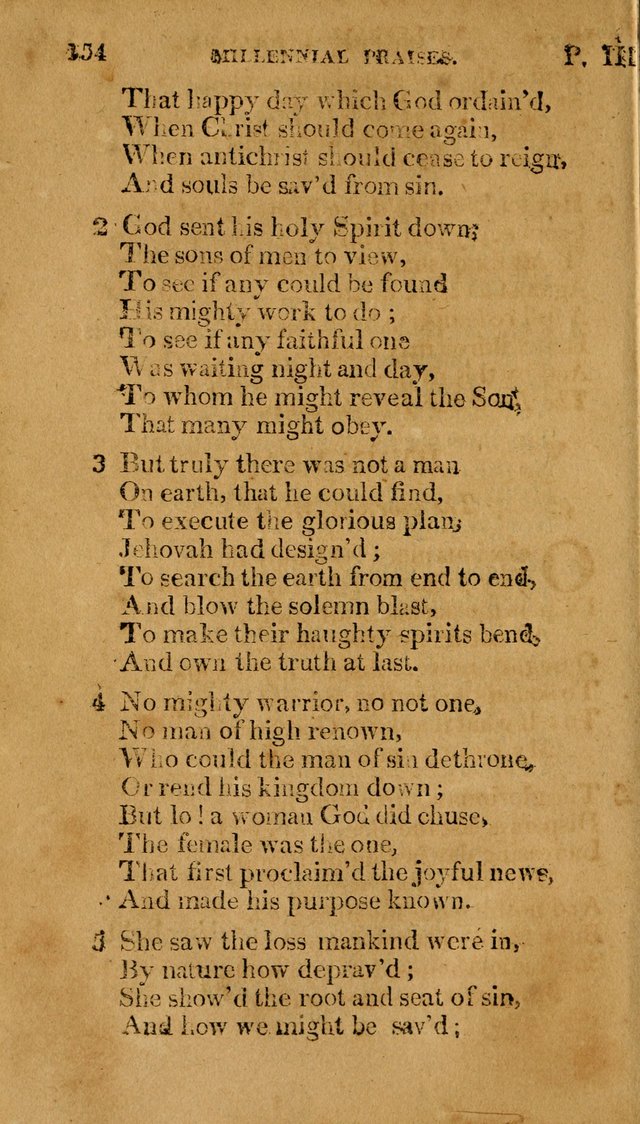 154 MILLENNIAL PRAISES. P. III
That happy day which God ordain'd,
When Christ should come again,
When antichrist should cease to reign,
And souls be sav'd from sin.
2 God sent his holy Spirit down,
The sons of men to view,
To see if any could be found
His mighty work to do ;
To see if any faithful one
Was waiting night and day,
To whom he might reveal the Son,
That many might obey.
3 But truly there was not a man
On earth, that he could find,
To execute the glorious plan,
Jehovah had design'd ;
To search the earth from end to end,
And blow the solemn blast,
To make their haughty spirits bend,
And own the truth at last.
4 No mighty warrior, no not one,
No man of high renown,
Who could the man of sin dethrone,
Or rend his kingdom down ;
But lo ! a woman God did chuse,
The female was the one,
That first proclaim'd the joyful news,
And made his purpose known.
5 She saw the loss mankind were in,
By nature how deprav'd ;
She show'd the root and seat of sin,
And how we might be sav'd ;